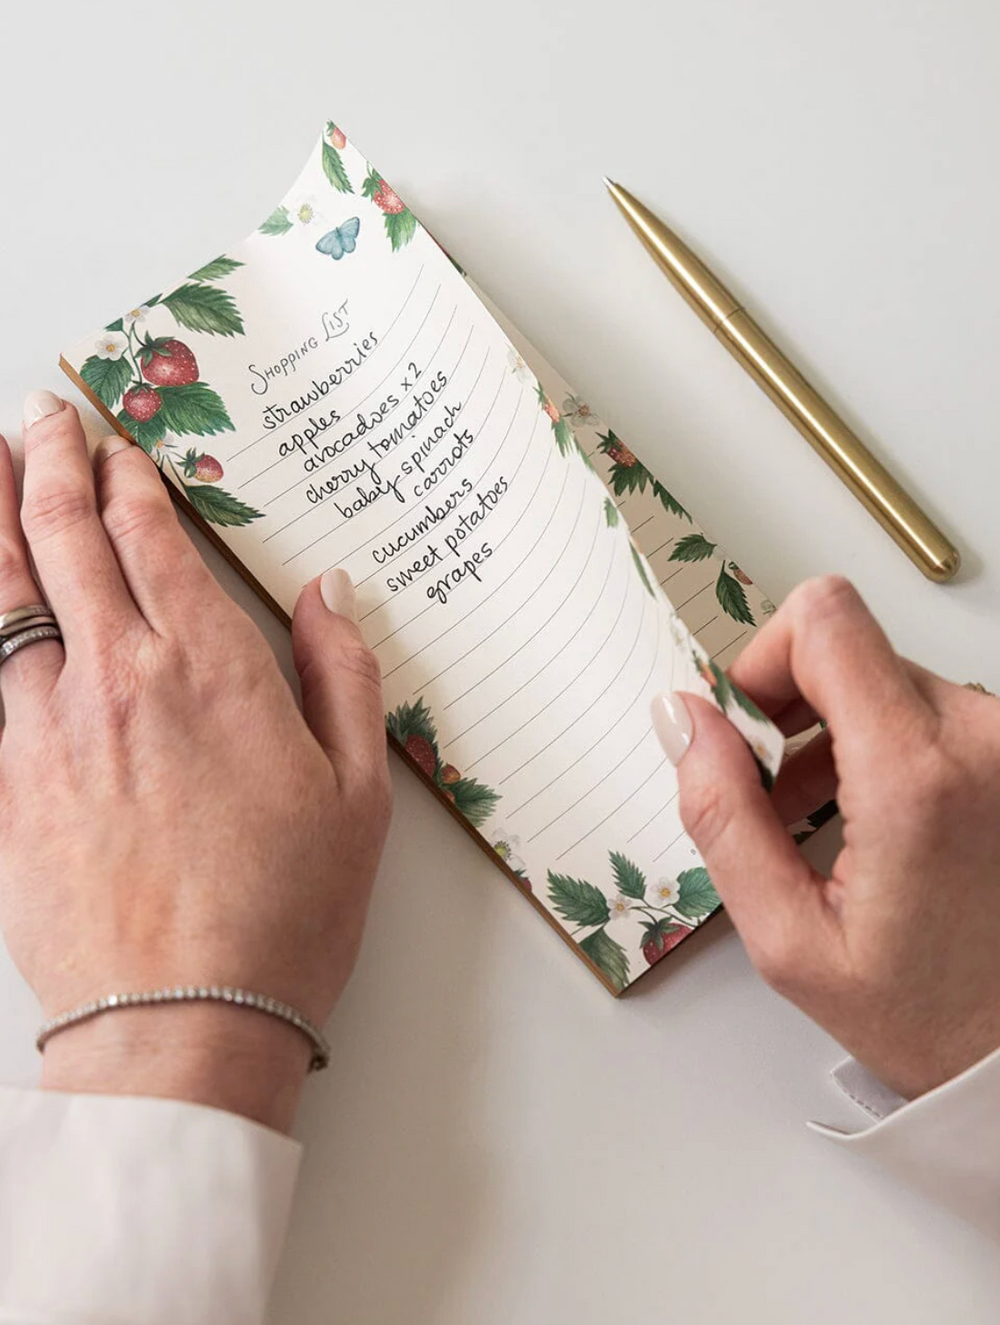 SHOPPING LIST
strawberries
apples
avocadoes x 2
cherry tomatoes
baby spinach
carrots
cucumbers
sweet potatoes
grapes